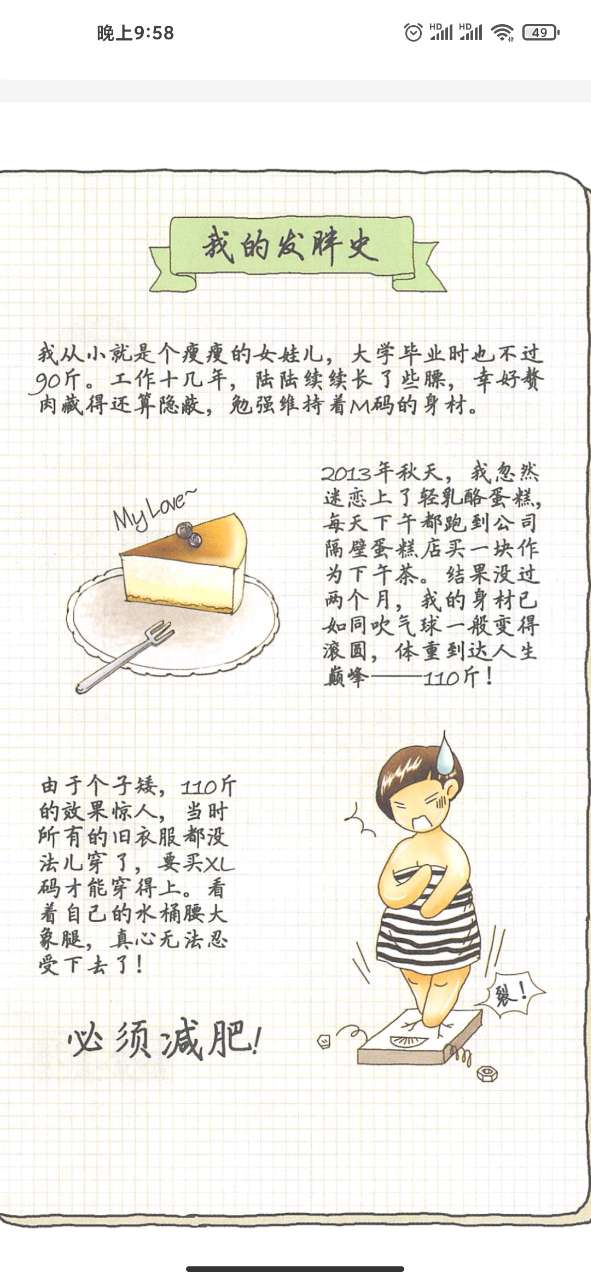 晚上9:58
HD
HD
49
我的发胖史
我从小就是个瘦瘦的女娃儿，大学毕业时也不过
90斤。工作十几年，陆陆续续长了些膘，幸好赘
肉藏得还算隐蔽，勉强维持着M码的身材。
My Love~
2013年秋天，我忽然
迷恋上了轻乳酪蛋糕，
每天下午都跑到公司
隔壁蛋糕店买一块作
为下午茶。结果没过
两个月，我的身材已
如同吹气球一般变得
滚圆，体重到达人生
巅峰——110斤！
由于个子矮，110斤
的效果惊人，当时
所有的旧衣服都没
法儿穿了，要买XL
码才能穿得上。看
着自己的水桶腰大
象腿，真心无法忍
受下去了！
裂！
必须减肥！